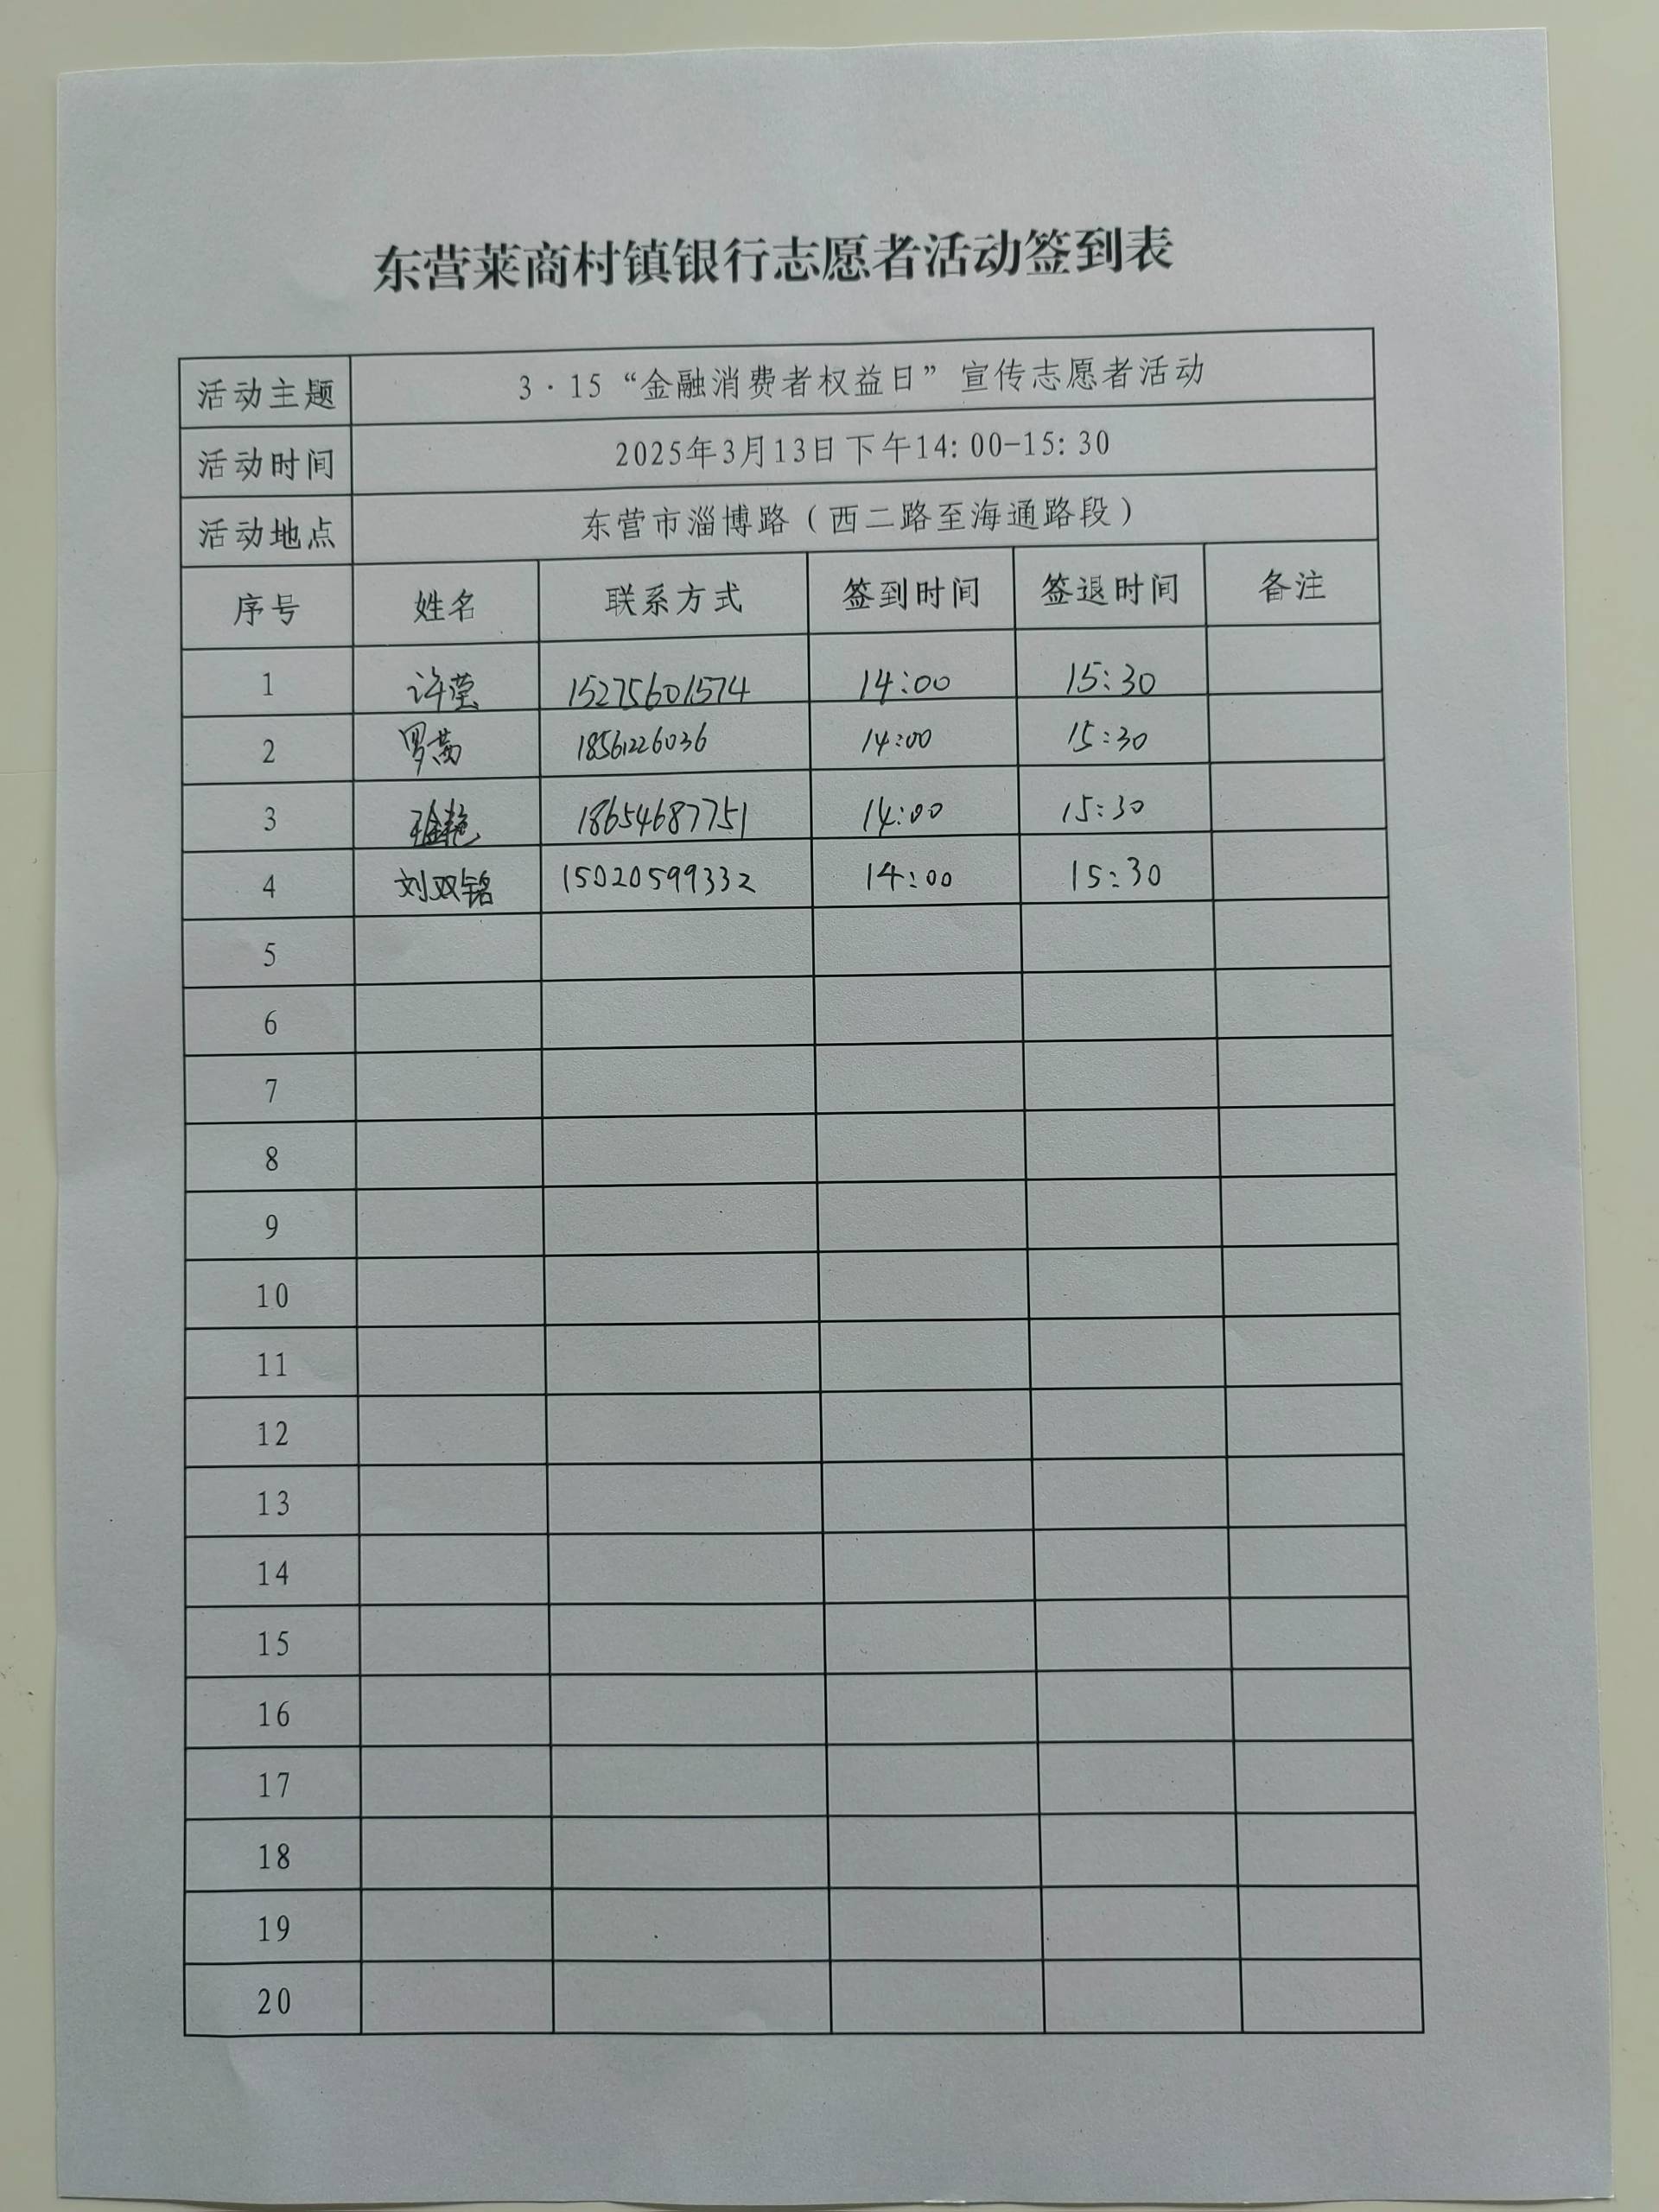 东营莱商村镇银行志愿者活动签到表
活动主题 3·15“金融消费者权益日”宣传志愿者活动
活动时间 2025年3月13日下午14:00-15:30
活动地点 东营市淄博路（西二路至海通路段）
序号 姓名 联系方式 签到时间 签退时间 备注
1 许莹 15275601574 14:00 15:30
2 罗茜 18561226036 14:00 15:30
3 18654687751 14:00 15:30
4 刘双铭 15020599332 14:00 15:30
5
6
7
8
9
10
11
12
13
14
15
16
17
18
19
20